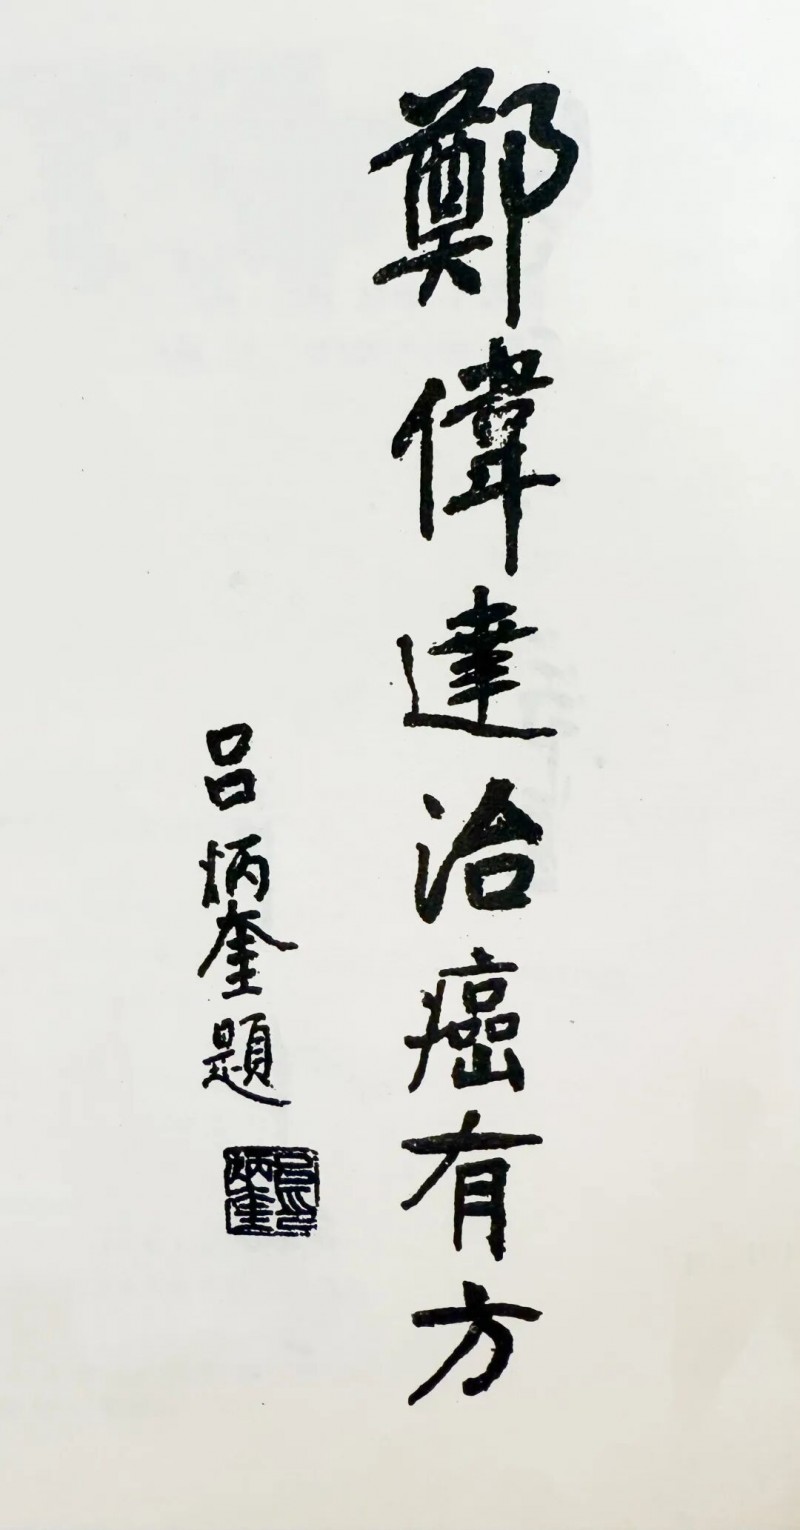 鄭偉達治癌有方
吕炳奎題
吕炳奎印